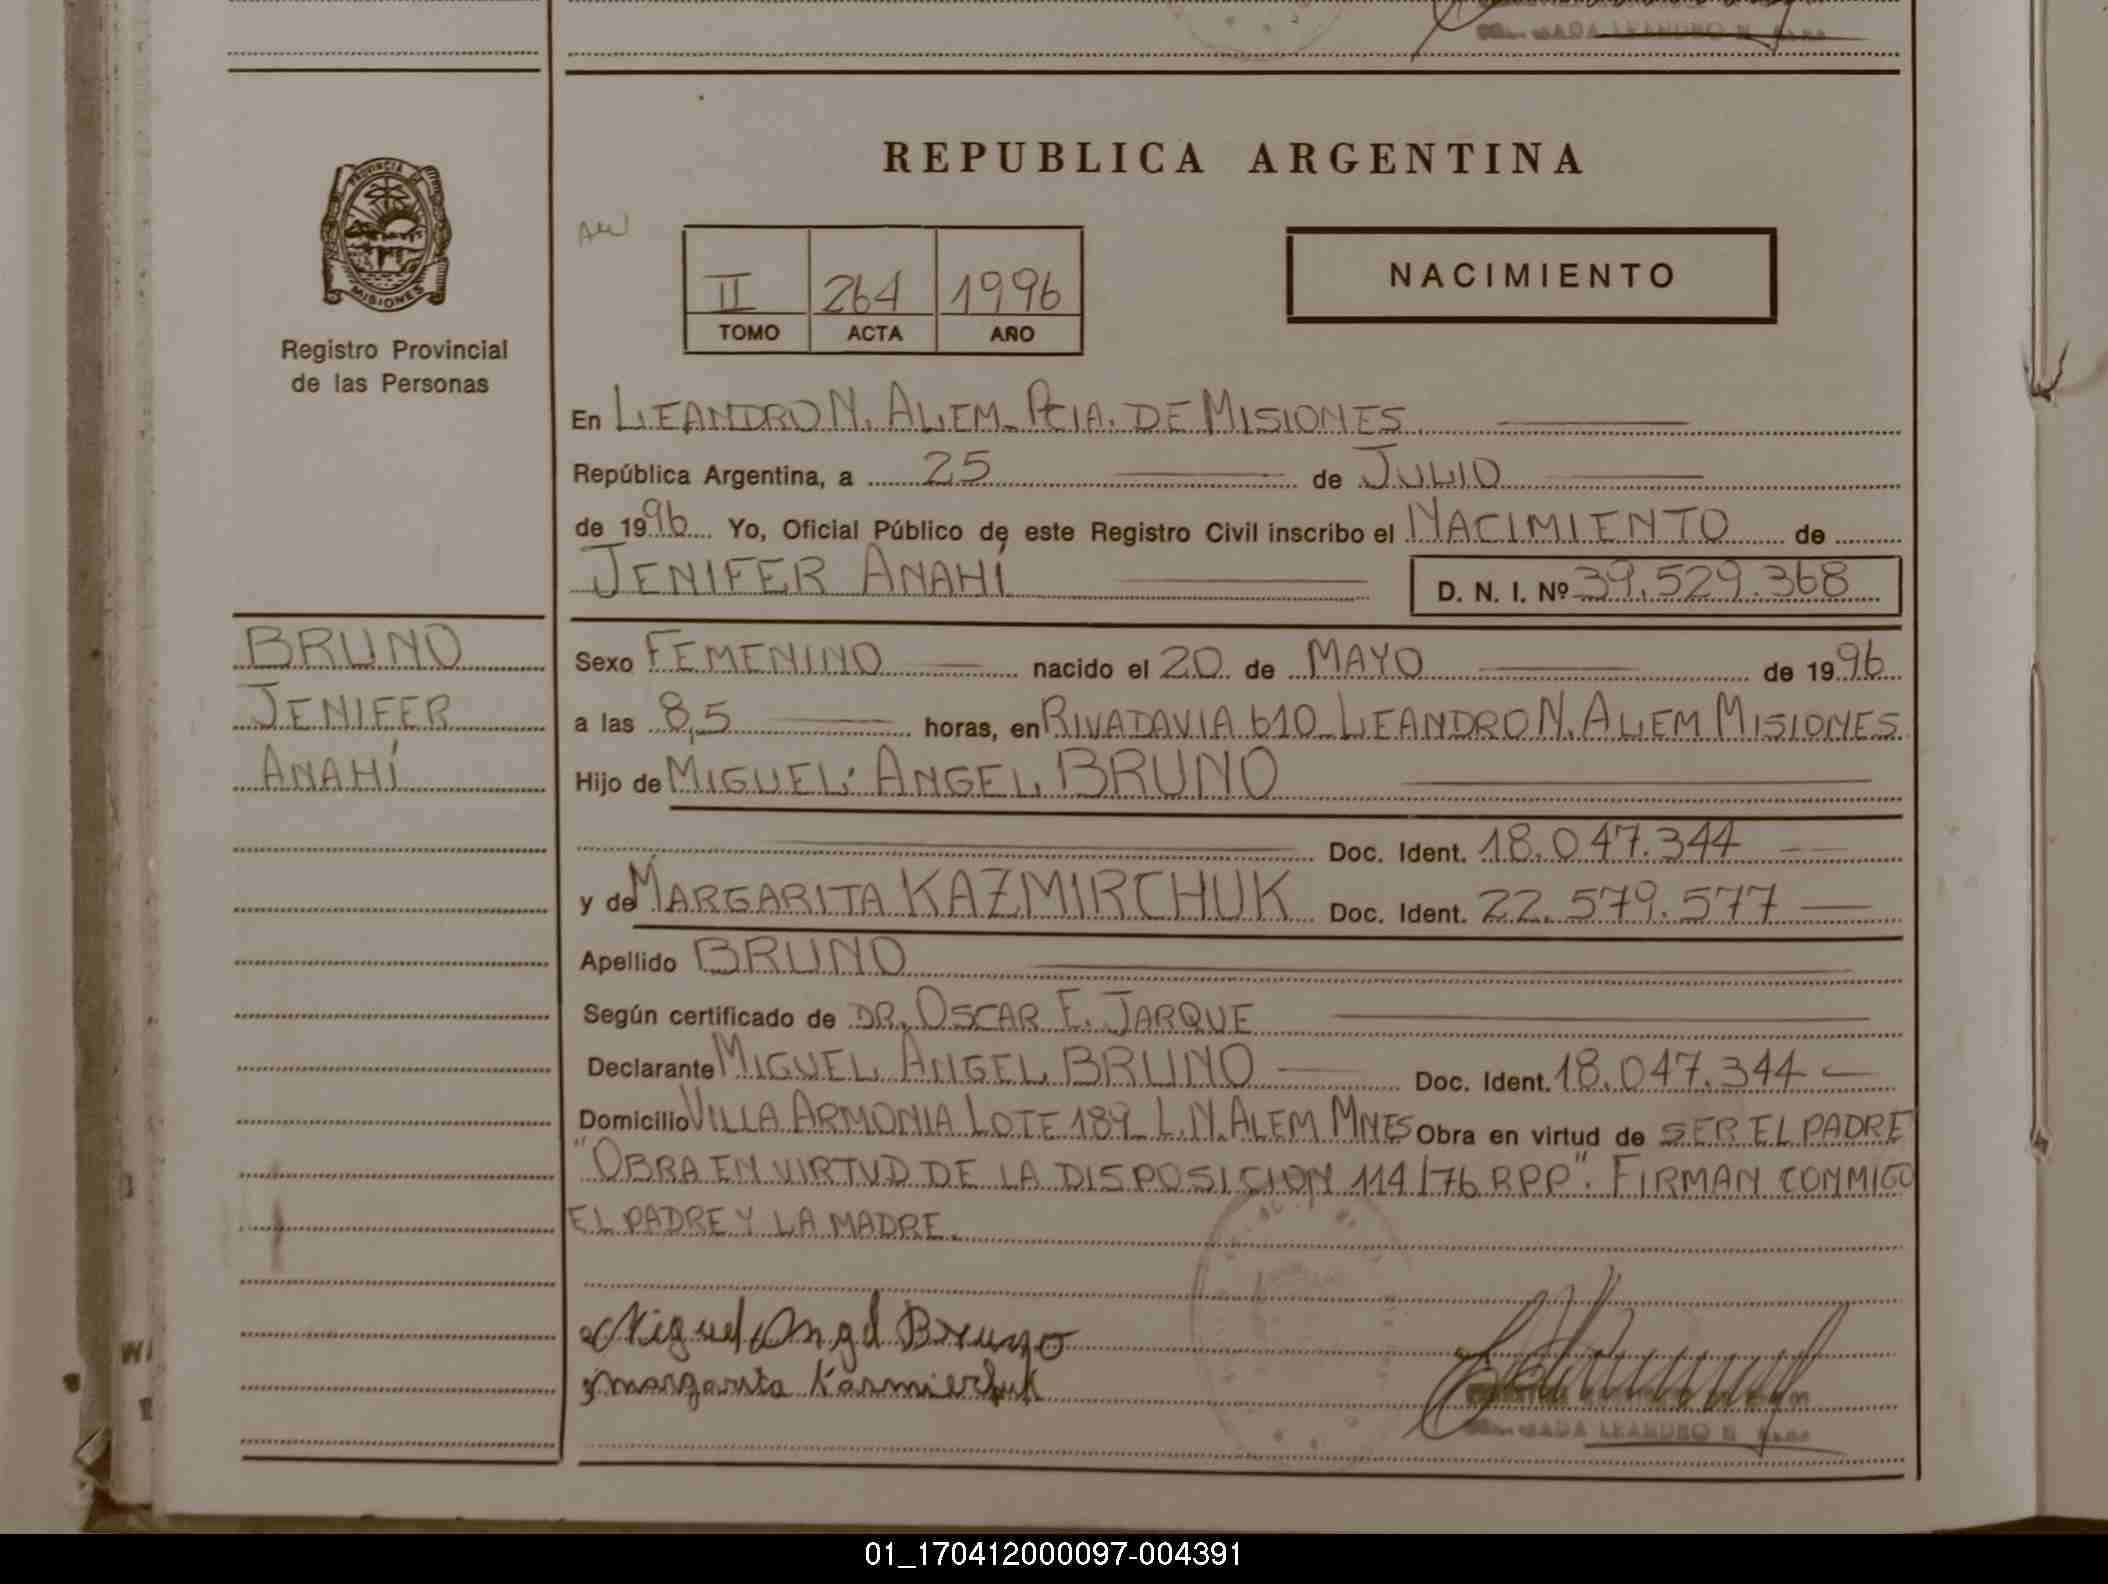 REPUBLICA ARGENTINA
PROVINCIA DE
MISIONES
Registro Provincial
de las Personas
II 264 1996
TOMO ACTA AÑO
NACIMIENTO
En LEANDRO N. ALEM_PCIA. DE MISIONES
República Argentina, a 25 de JULIO
de 1996 Yo, Oficial Público de este Registro Civil inscribo el NACIMIENTO de
JENIFER ANAHÍ D. N. I. Nº 39.529.368
BRUNO
JENIFER
ANAHÍ
Sexo FEMENINO nacido el 20 de MAYO de 1996
a las 8,5 horas, en RIVADAVIA 610_LEANDRO N. ALEM MISIONES
Hijo de MIGUEL ANGEL BRUNO
Doc. Ident. 18.047.344
y de MARGARITA KAZMIRCHUK Doc. Ident. 22.579.577
Apellido BRUNO
Según certificado de DR. OSCAR E. JARQUE
Declarante MIGUEL ANGEL BRUNO Doc. Ident. 18.047.344
Domicilio VILLA ARMONIA LOTE 189_L.N.ALEM MNES Obra en virtud de SER EL PADRE
"OBRA EN VIRTUD DE LA DISPOSICION 114/76 RPP". FIRMAN CONMIGO
EL PADRE Y LA MADRE.
Miguel Angel Bruno
margarita Kasmierchuk
LEANDRO N
01_170412000097-004391